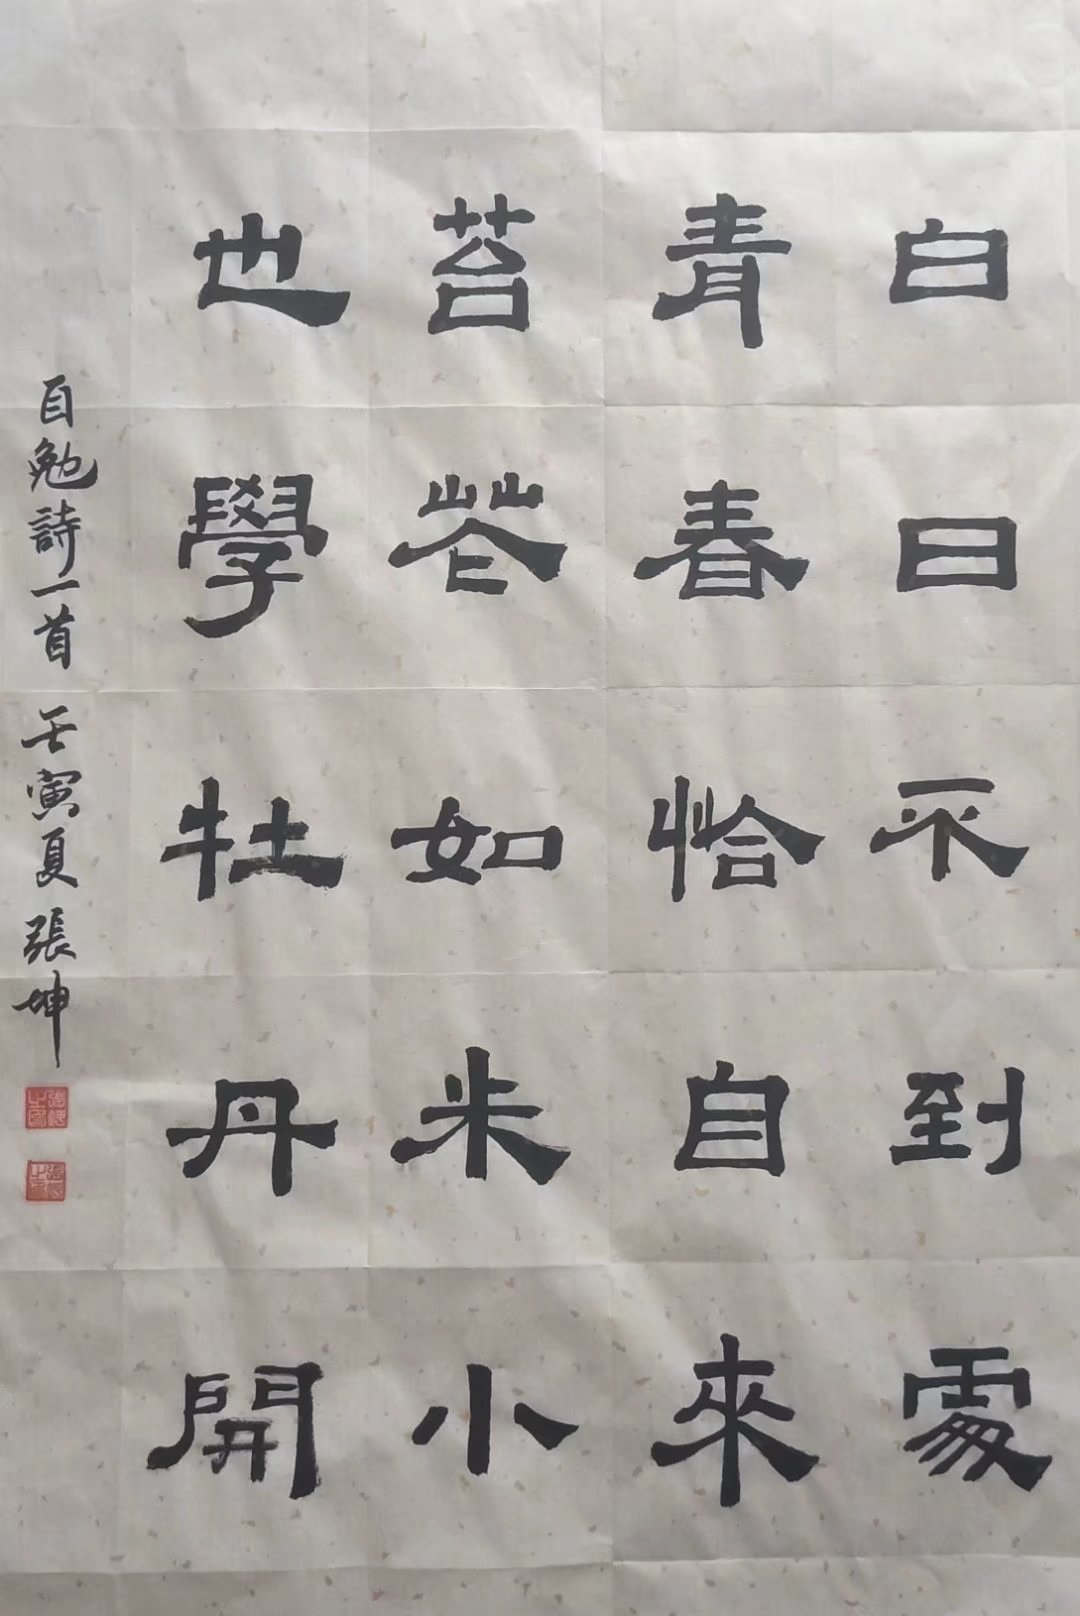 白日不到處
青春恰自來
苔花如米小
也學牡丹開
自勉詩一首 壬寅夏張坤